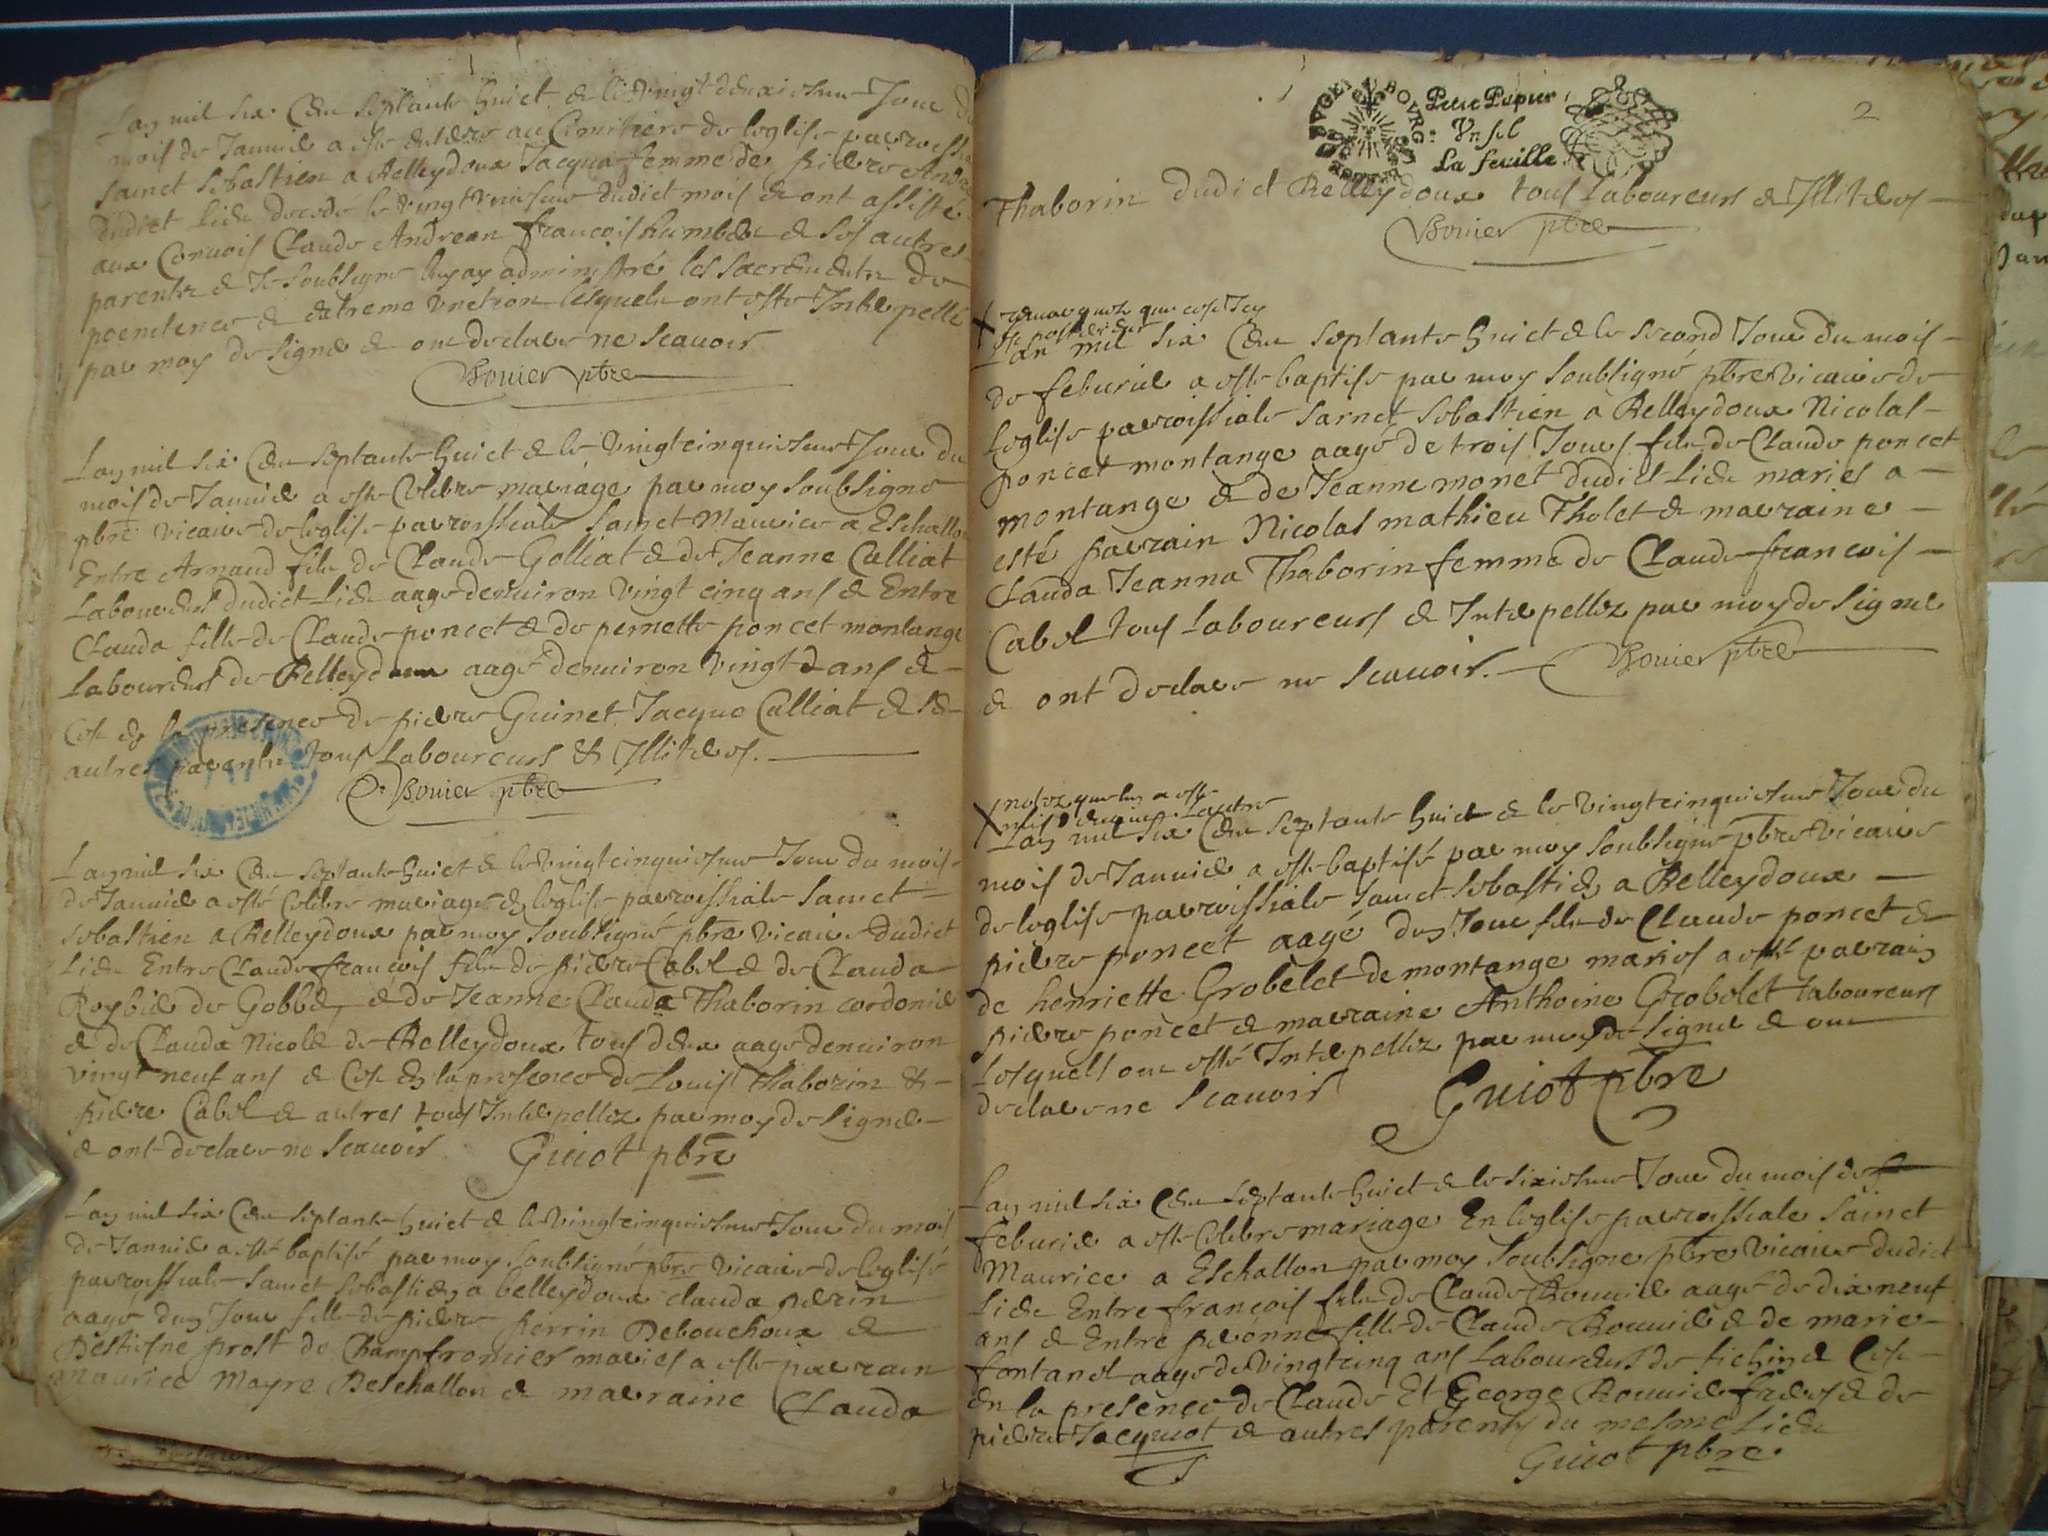 Lan mil six Cent septante huict & le vingt deuxiesme Jour du
mois de Janvier a esté enterré au Cimitiere de leglise parrossi
sainct sebastien a Belleydoux Jacqua femme de pierre Andre
dudict lieu decedé le vingtuniesme dudict mois & ont assisté
aux Convois Claude Andrean francois humbert & les autres
parentz & Je soubsigné luy ay administré les sacrementz de
poenitence & extreme unction lesquels ont esté Interpellé
par moy de signer & ont declare ne scavoir
Bouier pbre
Lan mil six Cent septante huict & le vingtcinquiesme Jour du
mois de Janvier a esté celebre mariage par moy soubsigné
pbre vicaire de leglise parroissiale sainct Maurice a Eschallon
Entre Arnaud fils de Claude Golliat & de Jeanne Calliat
Laboureurs dudict lieu aagé denuiron vingt cinq ans & Entre
Clauda fille de Claude poncet & de pernette poncet montange
Laboureurs de Belleydoux aagé denuiron vingt 2 ans &
Ce en la presence de pierre Guinet Jacque Calliat &
autres parentz tous Laboureurs & Illiteres.
Bouier pbre
Lan mil six Cent septante huict & le vingtcinquiesme Jour du mois
de Janvier a esté celebre mariage en leglise parroissiale sainct
sebastien a Belleydoux par moy soubsigné pbre vicaire dudict
lieu Entre Claude francois fils de pierre Cabel & de Clauda
& de Jeanne Clauda Thaborin cordonier
& de Clauda Nicole de Belleydoux tous deux aagé denuiron
vingt neuf ans & Ce en la presence de Louis Thaborin &
pierre Cabel & autres tous Interpellez par moy de signer
& ont declare ne scavoir Guiot pbre
Lan mil six Cent septante huict & le vingtcinquiesme Jour du mois
de Janvier a esté baptisé par moy soubsigné pbre vicaire de leglise
parroissiale sainct sebastien a belleydoux clauda perrin
aagé dun Jour fille de pierre perrin Debouchoux &
Destiesne prost de Champfromier mariés a esté parrain
Maurice Mayre Deschallon & marraine Clauda
Petit Papier
Un sol
La feuille
2
Thaborin dudict Belleydoux tous Laboureurs & Illiteres
Bouier pbre
remarquez que cest Icy
est posterieur
Lan mil six Cent septante huict & le second Jour du mois
de feburier a esté baptisé par moy soubsigné pbre vicaire de
leglise parroissiale sainct sebastien a Belleydoux Nicolas
poncet montange aagé de trois Jours fils de Claude poncet
montange & de Jeanne monet dudict lieu mariés a
esté parrain Nicolas mathieu Tholet & marraine
Clauda Jeanna Thaborin femme de Claude francois
Cabel tous Laboureurs & Interpellez par moy de signer
& ont declare ne scavoir. Bouier pbre
notez que
Lan mil six Cent septante huict & le vingtcinquiesme Jour du
mois de Janvier a esté baptisé par moy soubsigné pbre vicaire
de leglise parroissiale sainct sebastien a Belleydoux
pierre poncet aagé dun Jour fils de Claude poncet &
de henriette Grobelet de montange mariés a esté parrain
pierre poncet & marraine Anthoine Grobelet Laboureurs
Lesquels ont esté Interpellez par moy de signer & ont
declare ne scavoir Guiot pbre
Lan mil six Cent septante huict & le sixiesme Jour du mois de
feburier a esté celebre mariage En leglise parroissiale sainct
Maurice a Eschallon par moy soubsigné pbre vicaire dudict
lieu Entre francois fils de Claude Bouvier aagé de dix neuf
ans & Entre pernne fille de Claude Bouvier & de marie
fontanel aagé de vingtcinq ans Laboureurs de & Ce
en la presence de Claude Et George Bouvier freres & de
pierre Jacquiot & autres parents du mesme lieu
Guiot pbre